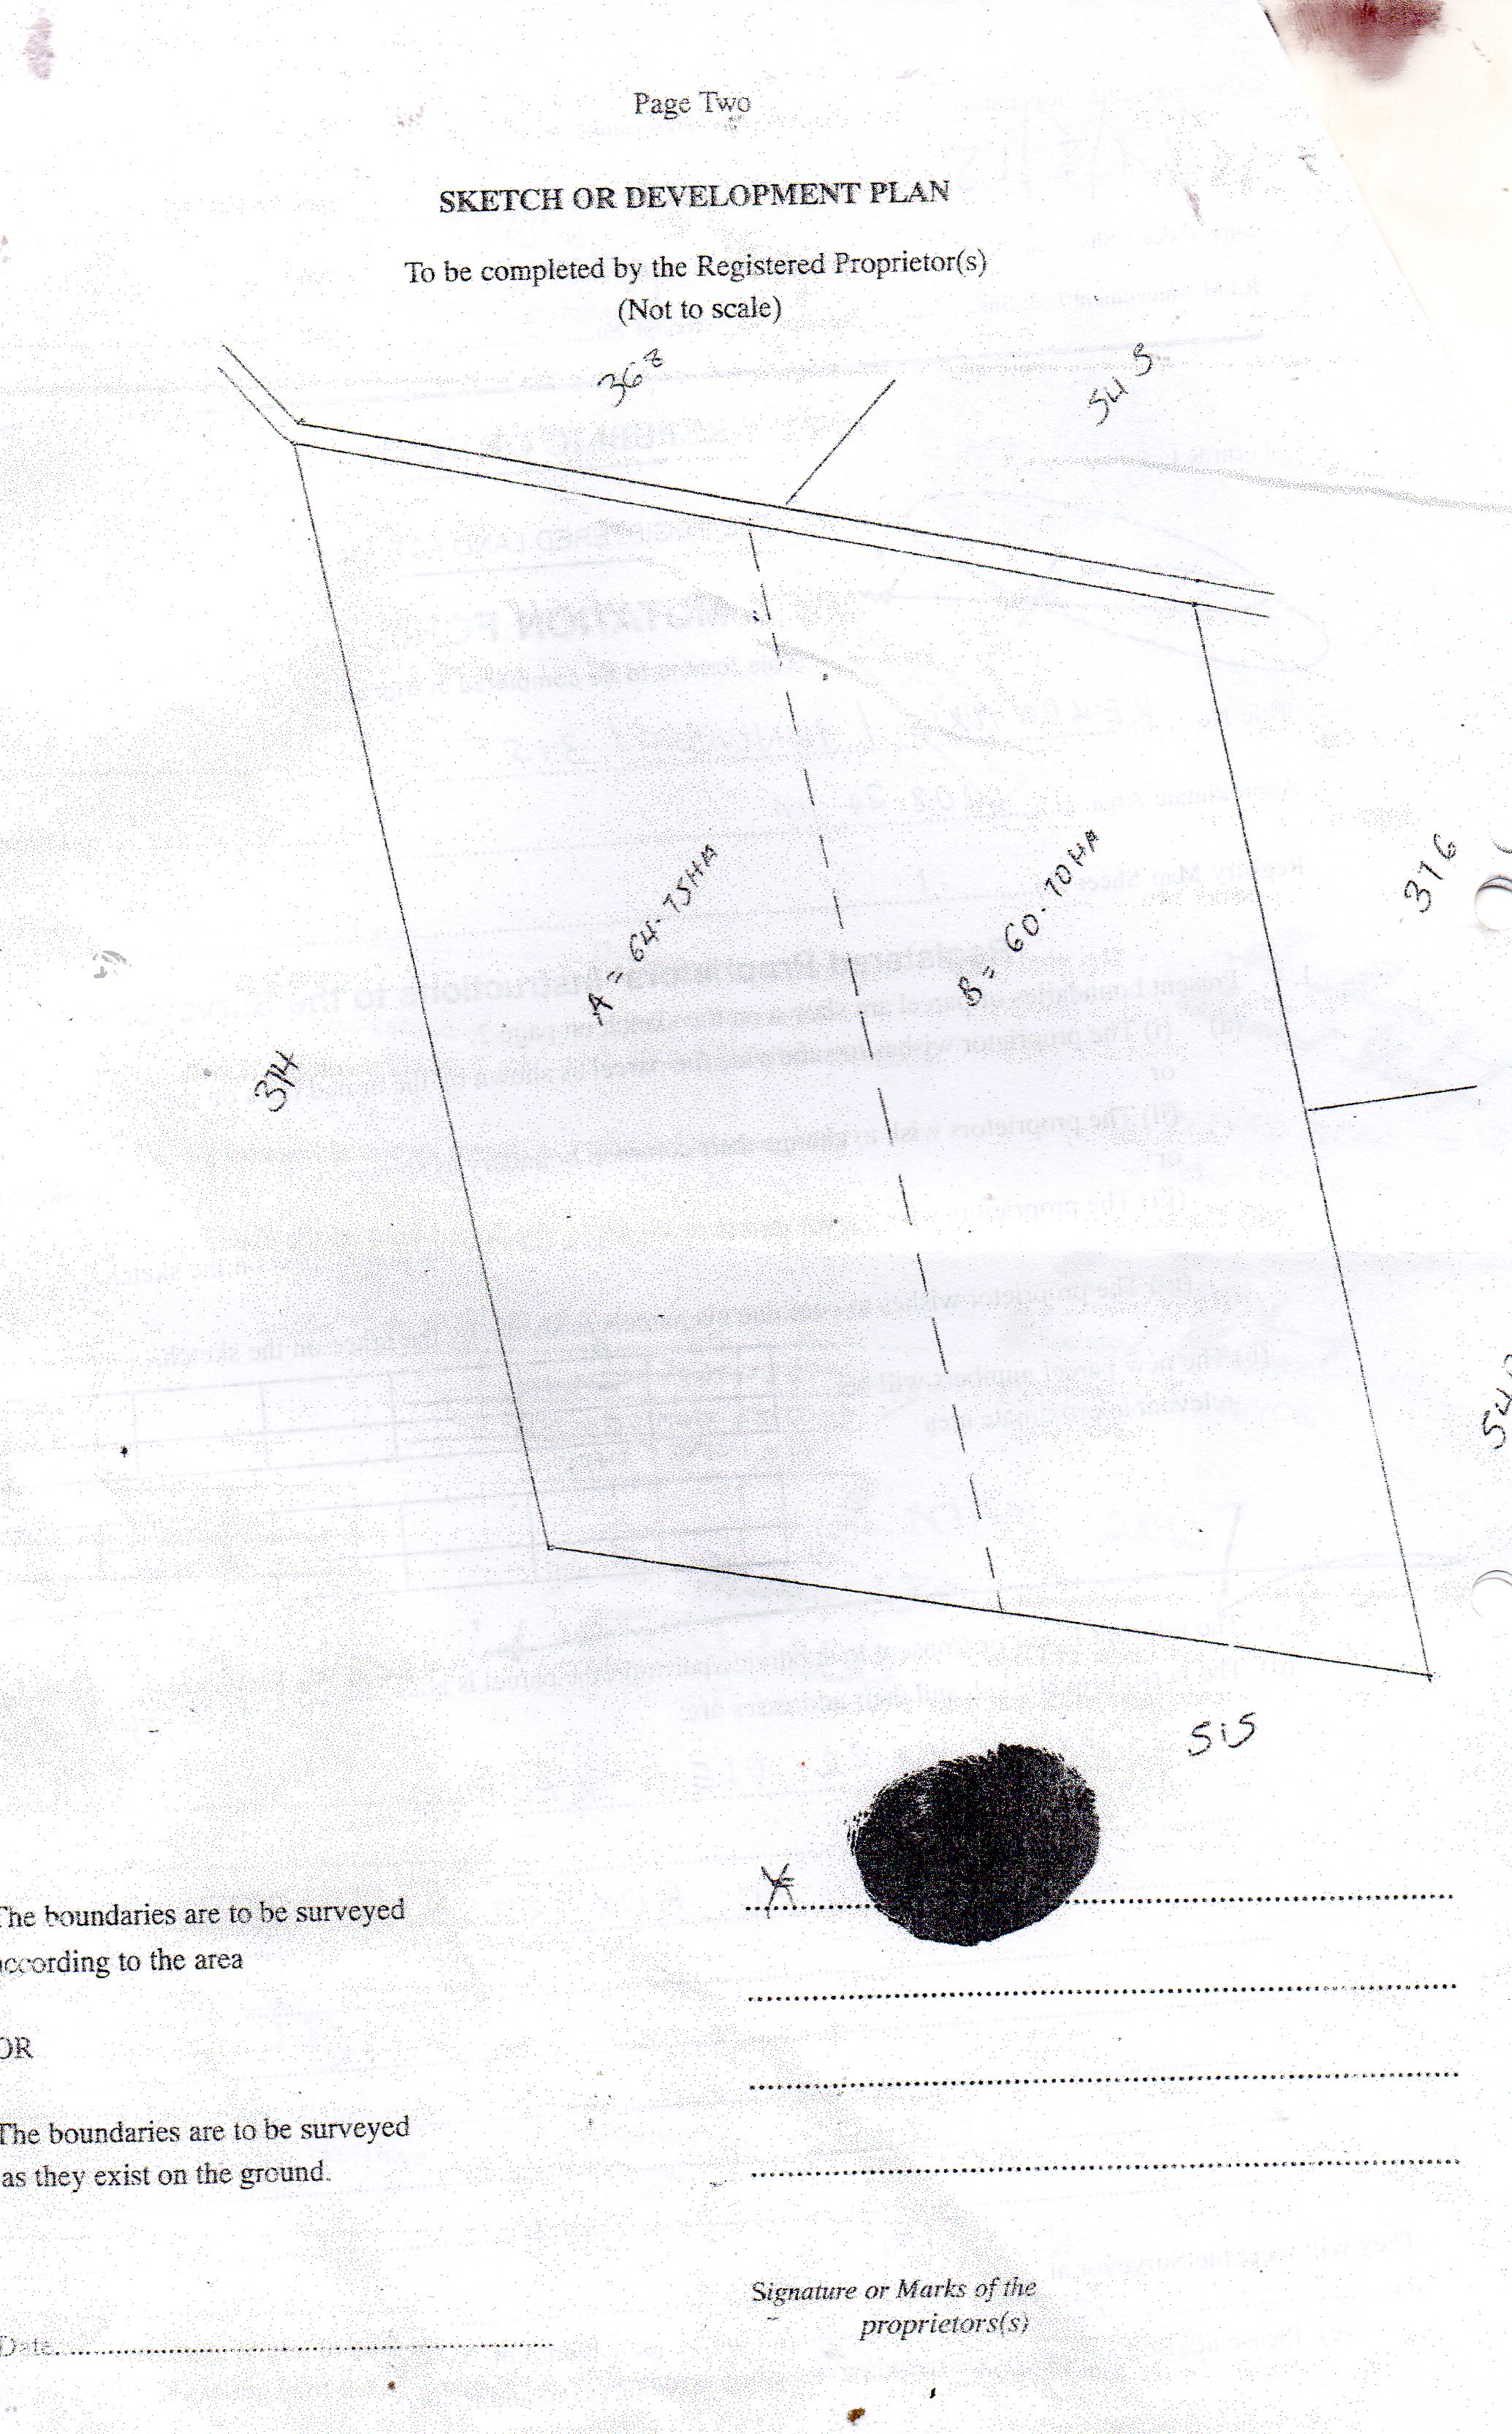 Page Two
SKETCH OR DEVELOPMENT PLAN
To be completed by the Registered Proprietor(s)
(Not to scale)
368
545
A = 64.75HA
B = 60.70HA
376
374
515
The boundaries are to be surveyed
according to the area
OR
The boundaries are to be surveyed
as they exist on the ground.
Signature or Marks of the
proprietors(s)
Date